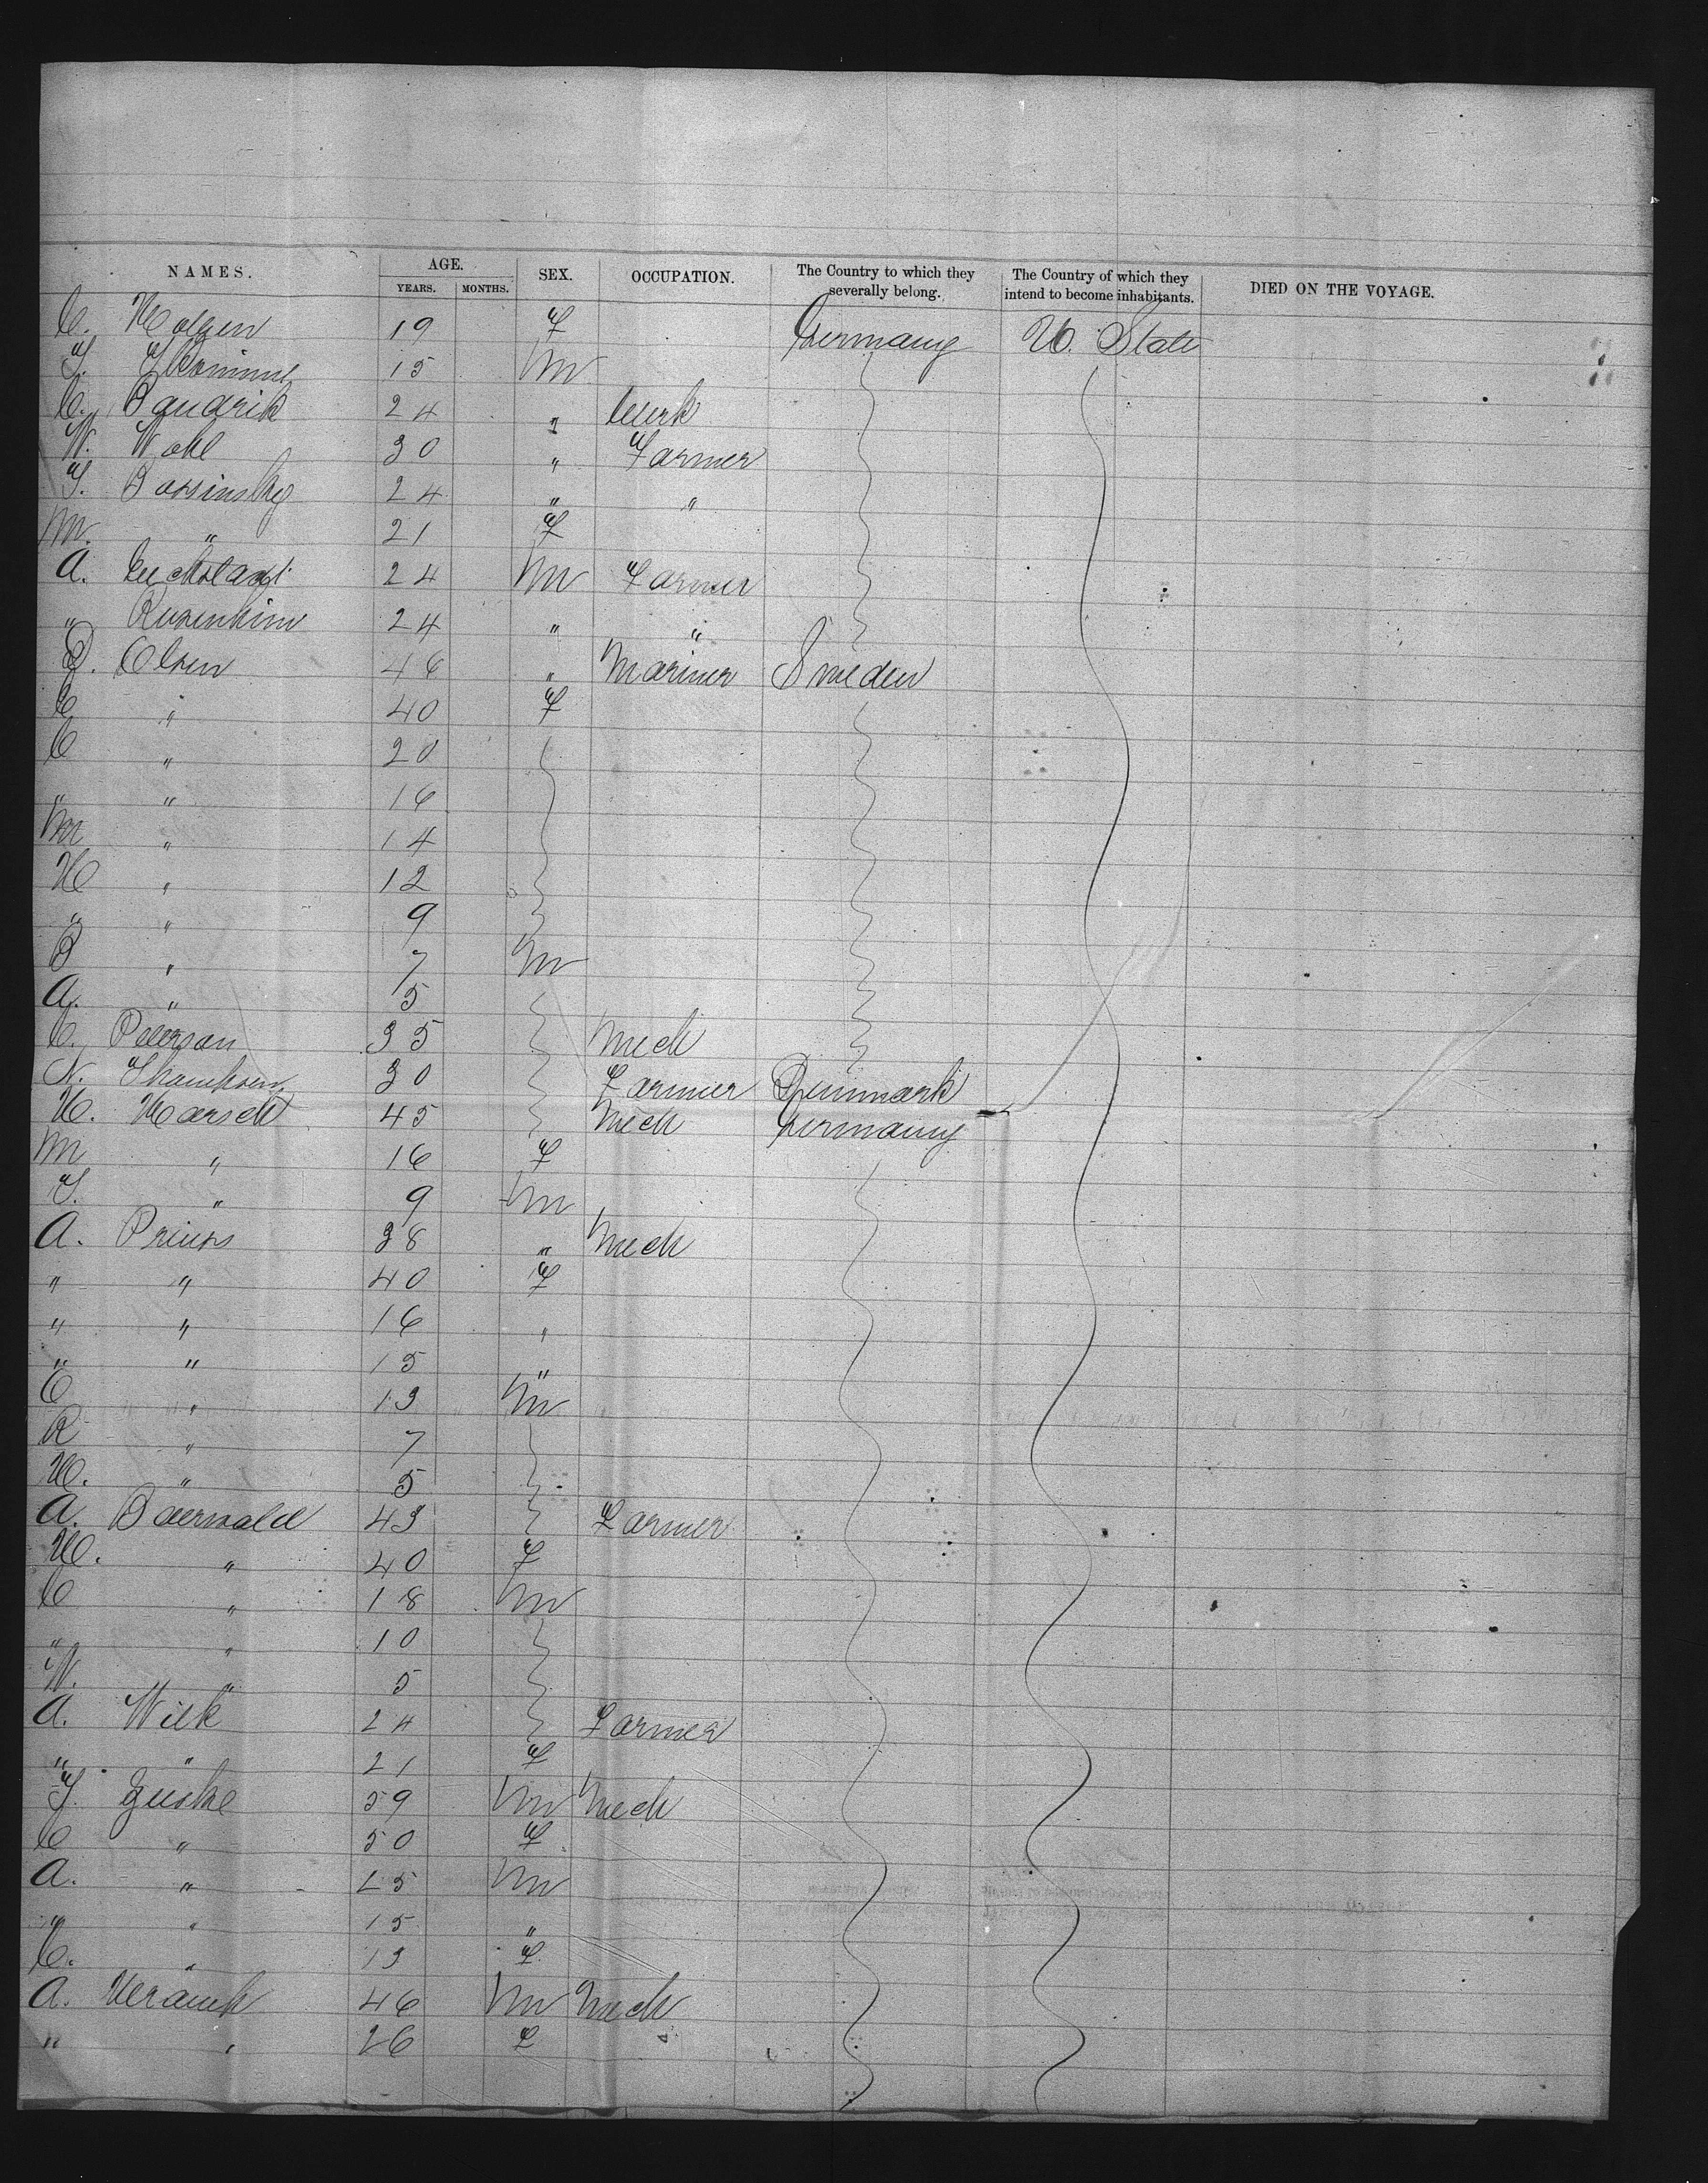 NAMES. AGE. SEX. OCCUPATION. The Country to which they severally belong. The Country of which they intend to become inhabitants. DIED ON THE VOYAGE.
YEARS. MONTHS.
C. 19 F Germany U. State
15 M
C. Bandrik 24 " Clerk
W. Wohl 30 " Farmer
J. 24 " "
M. " 21 F
A. 24 M Farmer
" Rosenhim 24 " "
O. Olsen 46 " Mariner Sweden
C " 40 F
C " 20
" " 16
M " 14
H " 12
" " 9
B " 7 M
A. " 5
C. Peterson 35 Mech
N. Thomhsen 30 Farmer Denmark
H. Harsch 45 Mech Germany
M " 16 F
J. " 9 M
A. Prieus 38 " Mech
" " 40 F
" " 16 "
" " 15 "
C " 13 M
R " 7
H. " 5
A. Baerwald 43 Farmer
H. " 40 F
C " 18 M
" " 10
W. " 5
A. Wilk 24 Farmer
" " 21 F
J. Guske 59 M Mech
C " 50 F
A. " 25 M
" " 15 "
C. " 13 F
A. 46 M Mech
" " 26 F